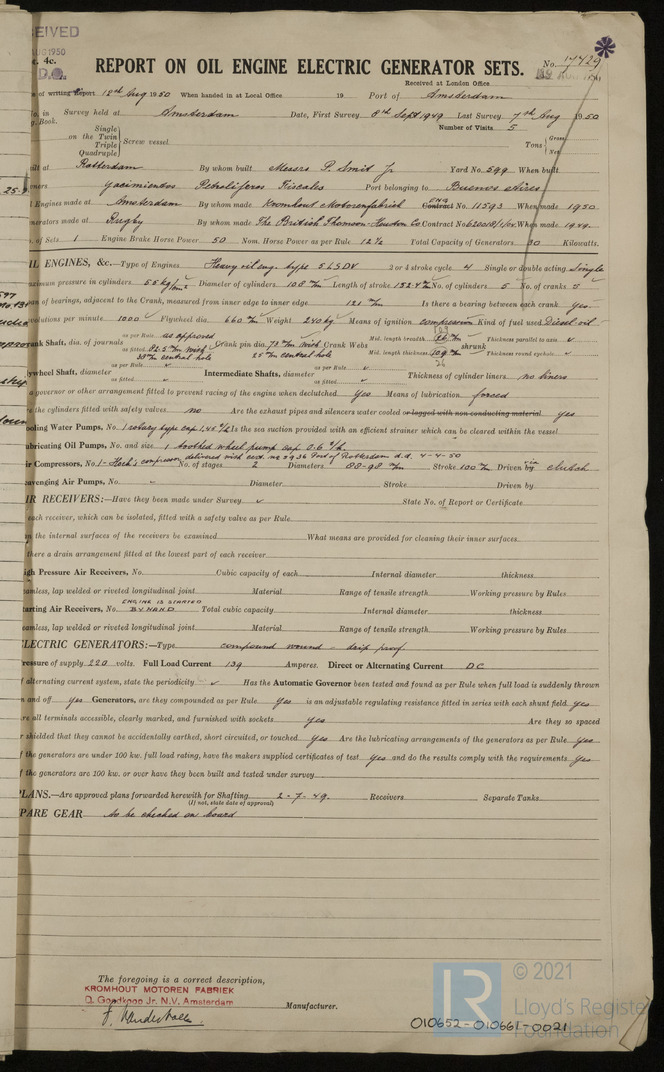 EIVED
AUG 1950
4c.
D.O.
REPORT ON OIL ENGINE ELECTRIC GENERATOR SETS.
No. 17429
Received at London Office
of writing Report 12th Aug 1950 When handed in at Local Office 19 Port of Amsterdam
No. in Survey held at Amsterdam Date, First Survey 8th Sept 1949 Last Survey 7th Aug 1950
g. Book. Number of Visits 5
on the Single Twin Triple Quadruple Screw vessel Tons Gross Net
ilt at Rotterdam By whom built Messrs P. Smit Jr Yard No. 599 When built
ners Yacimientos Petroliferos Fiscales Port belonging to Buenos Aires
Engines made at Amsterdam By whom made Kromhout Motorenfabriek Contract Eng No. 11593 When made 1950
nerators made at Rugby By whom made The British Thomson-Houston Co Contract No When made 1949.
o. of Sets 1 Engine Brake Horse Power 50 Nom. Horse Power as per Rule 12½ Total Capacity of Generators 30 Kilowatts.
IL ENGINES, &c.—Type of Engines Heavy oil eng. type 5 LSDV 2 or 4 stroke cycle 4 Single or double acting Single
aximum pressure in cylinders 55 kg/cm² Diameter of cylinders 108 m/m Length of stroke 152.4 m/m No. of cylinders 5 No. of cranks 5
an of bearings, adjacent to the Crank, measured from inner edge to inner edge 121 m/m Is there a bearing between each crank yes
evolutions per minute 1000 Flywheel dia. 660 m/m Weight 240 kg Means of ignition compression Kind of fuel used Diesel oil
rank Shaft, dia. of journals as per Rule as approved as fitted 82.5 m/m with 35 m/m central hole Crank pin dia. 73 m/m with 25 m/m central hole Crank Webs Mid. length breadth Mid. length thickness shrunk Thickness parallel to axis Thickness round eyehole
lywheel Shaft, diameter as per Rule as fitted Intermediate Shafts, diameter as per Rule as fitted Thickness of cylinder liners no liners
a governor or other arrangement fitted to prevent racing of the engine when declutched Yes Means of lubrication forced
re the cylinders fitted with safety valves no Are the exhaust pipes and silencers water cooled or lagged with non conducting material yes
ooling Water Pumps, No. 1 rotary type cap 1,45 Is the sea suction provided with an efficient strainer which can be cleared within the vessel
ubricating Oil Pumps, No. and size 1 toothed wheel pump cap 0.6
delivered with cert. no 2936 Port of Rotterdam d.d. 4-4-50
ir Compressors, No. 1 - compressor No. of stages 2 Diameters 88-98 m/m Stroke 100 m/m Driven by clutch
cavenging Air Pumps, No. Diameter Stroke Driven by
IR RECEIVERS:—Have they been made under Survey State No. of Report or Certificate
each receiver, which can be isolated, fitted with a safety valve as per Rule
n the internal surfaces of the receivers be examined What means are provided for cleaning their inner surfaces
there a drain arrangement fitted at the lowest part of each receiver
igh Pressure Air Receivers, No. Cubic capacity of each Internal diameter thickness
eamless, lap welded or riveted longitudinal joint Material Range of tensile strength Working pressure by Rules
ENGINE IS STARTED
tarting Air Receivers, No. BY HAND Total cubic capacity Internal diameter thickness
eamless, lap welded or riveted longitudinal joint Material Range of tensile strength Working pressure by Rules
LECTRIC GENERATORS:—Type compound wound - drip proof
ressure of supply 220 volts. Full Load Current 139 Amperes. Direct or Alternating Current DC
f alternating current system, state the periodicity Has the Automatic Governor been tested and found as per Rule when full load is suddenly thrown
n and off yes Generators, are they compounded as per Rule Yes is an adjustable regulating resistance fitted in series with each shunt field yes
re all terminals accessible, clearly marked, and furnished with sockets yes Are they so spaced
r shielded that they cannot be accidentally earthed, short circuited, or touched yes Are the lubricating arrangements of the generators as per Rule yes
f the generators are under 100 kw. full load rating, have the makers supplied certificates of test yes and do the results comply with the requirements yes
f the generators are 100 kw. or over have they been built and tested under survey
LANS.—Are approved plans forwarded herewith for Shafting 2-7-49. Receivers Separate Tanks
(If not, state date of approval)
PARE GEAR to be checked on board
The foregoing is a correct description,
KROMHOUT MOTOREN FABRIEK
D. Goedkoop Jr. N.V. Amsterdam
Manufacturer.
© 2021
Lloyd's Registe
Foundation
010652-010661-0021